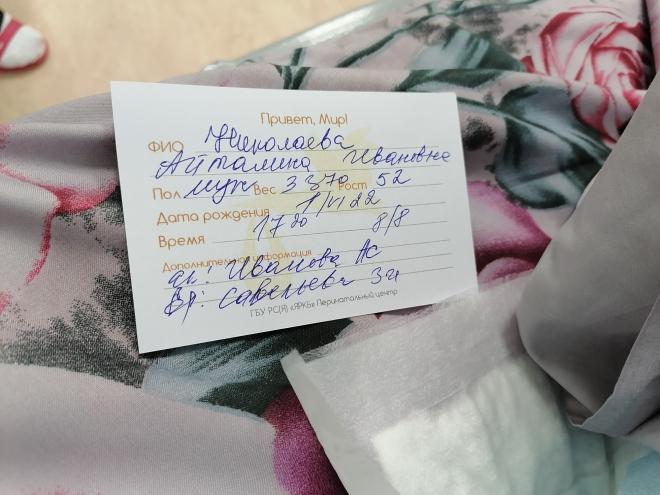 Привет, Мир!
ФИО Николаева
Айталина Ивановна
Пол муж Вес 3370 Рост 52
Дата рождения 1/VI 22
Время 17 20 8/8
Дополнительная информация
ак: Иванова АС
Вр: Савельева
ГБУ РС(Я) «ЯРКБ» Перинатальный центр